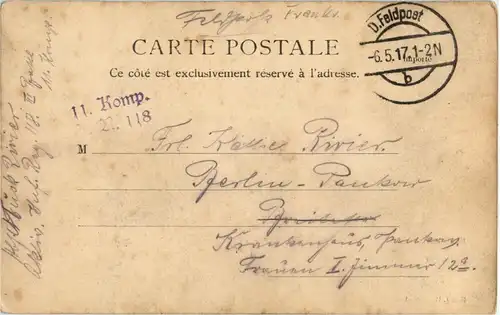 Feldpost Frankr.
D. Feldpost
-6.5.17.1-2N
b
CARTE POSTALE
Ce côté est exclusivement réservé à l'adresse.
11. Komp.
118
M
Frl. Käthe Rivier
Berlin-Pankow
Krankenhaus Pankow
Frauen I. Zimmer 12a.
Rivier
118 II
11. Komp.